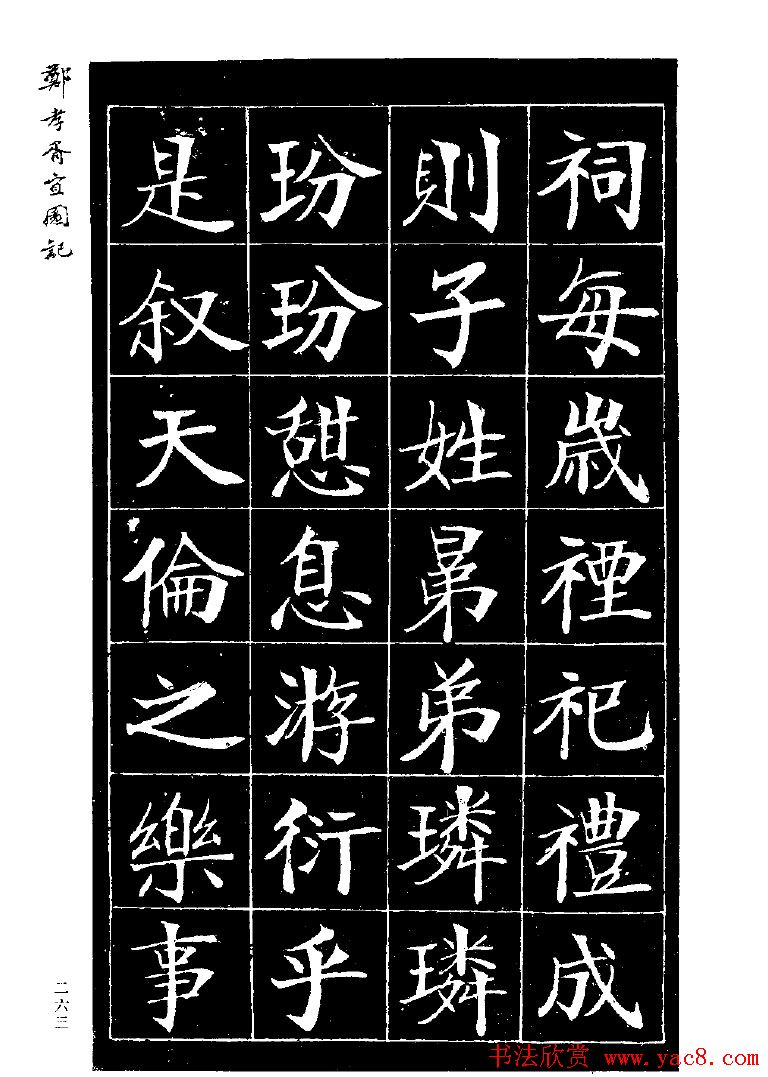 祠每歲禋祀禮成
則子姓晜弟璘璘
玢玢憇息游衍乎
是叙天倫之樂事
鄭孝胥宜園記
二六三
书法欣赏 www.yac8.com